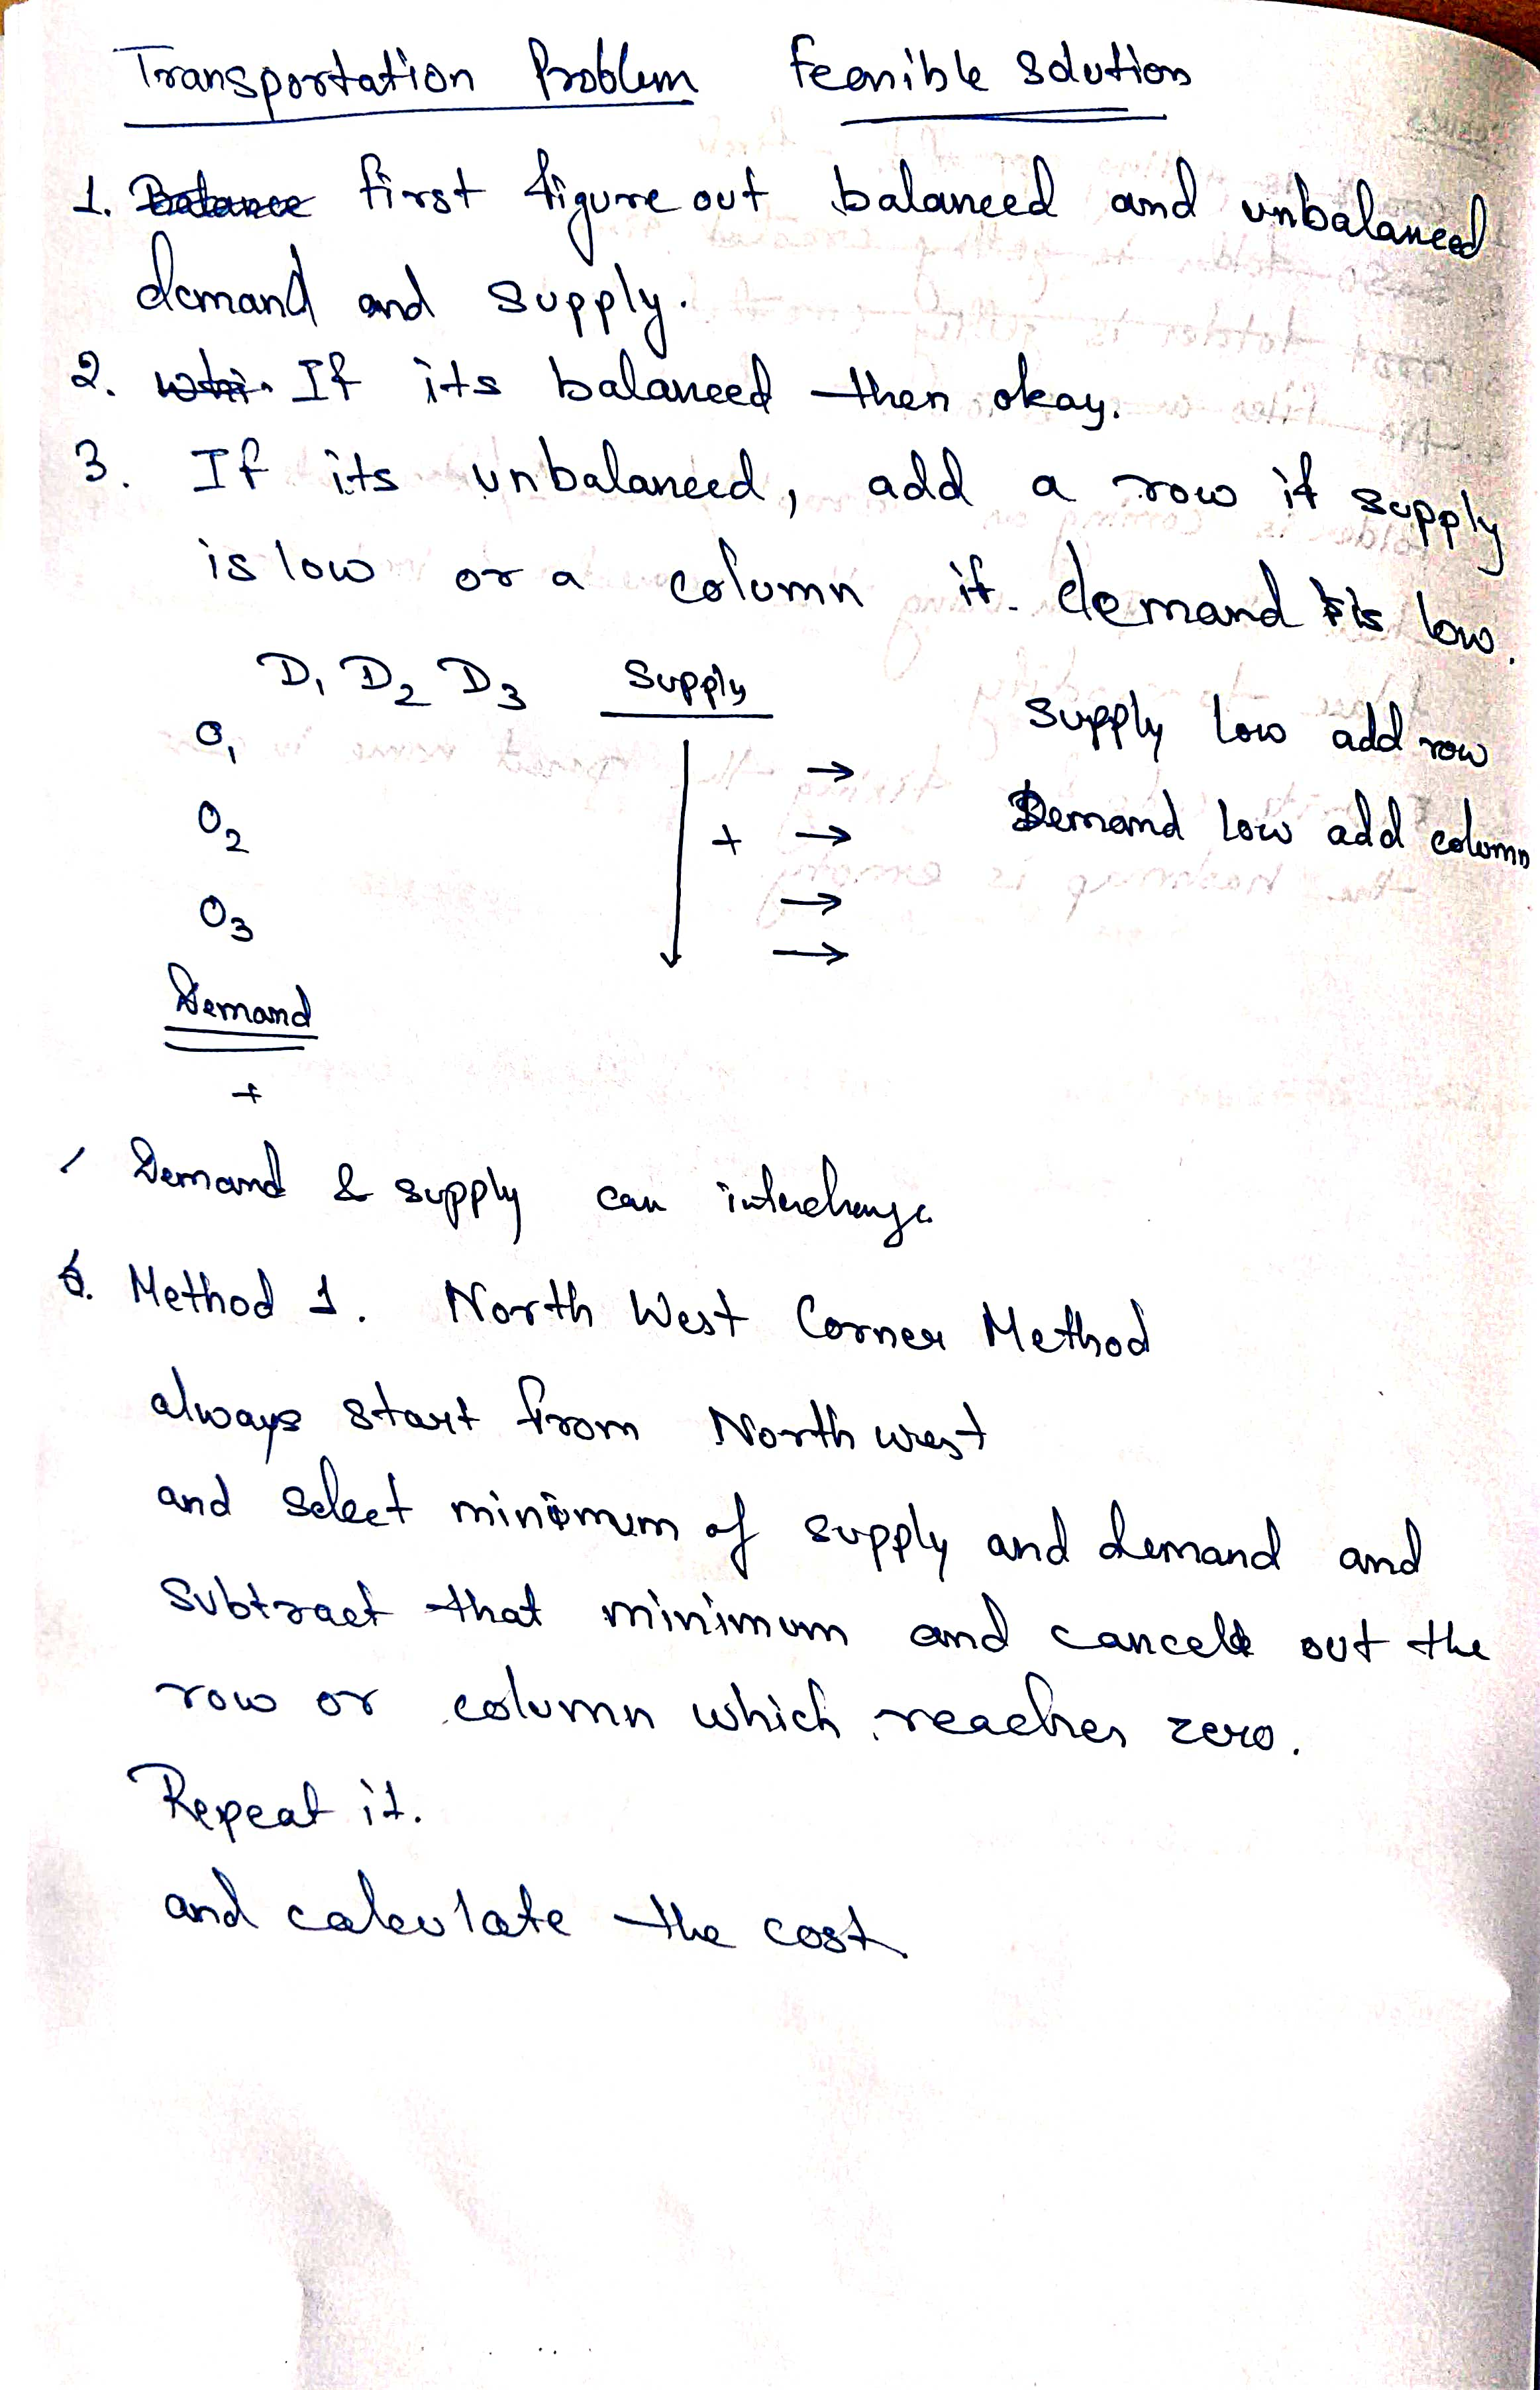 Transportation Problem Feasible Solution
1. Balance first figure out balanced and unbalanced
demand and supply.
2. If its balanced then okay.
3. If its unbalanced, add a row if supply
is low or a column if demand is low.
D1 D2 D3 Supply
Supply low add row
O1 →
O2 + → Demand low add column
O3 →
→
Demand
+
Demand & supply can interchange
6. Method 1. North West Corner Method
always start from North west
and select minimum of supply and demand and
subtract that minimum and cancel out the
row or column which reaches zero.
Repeat it.
and calculate the cost